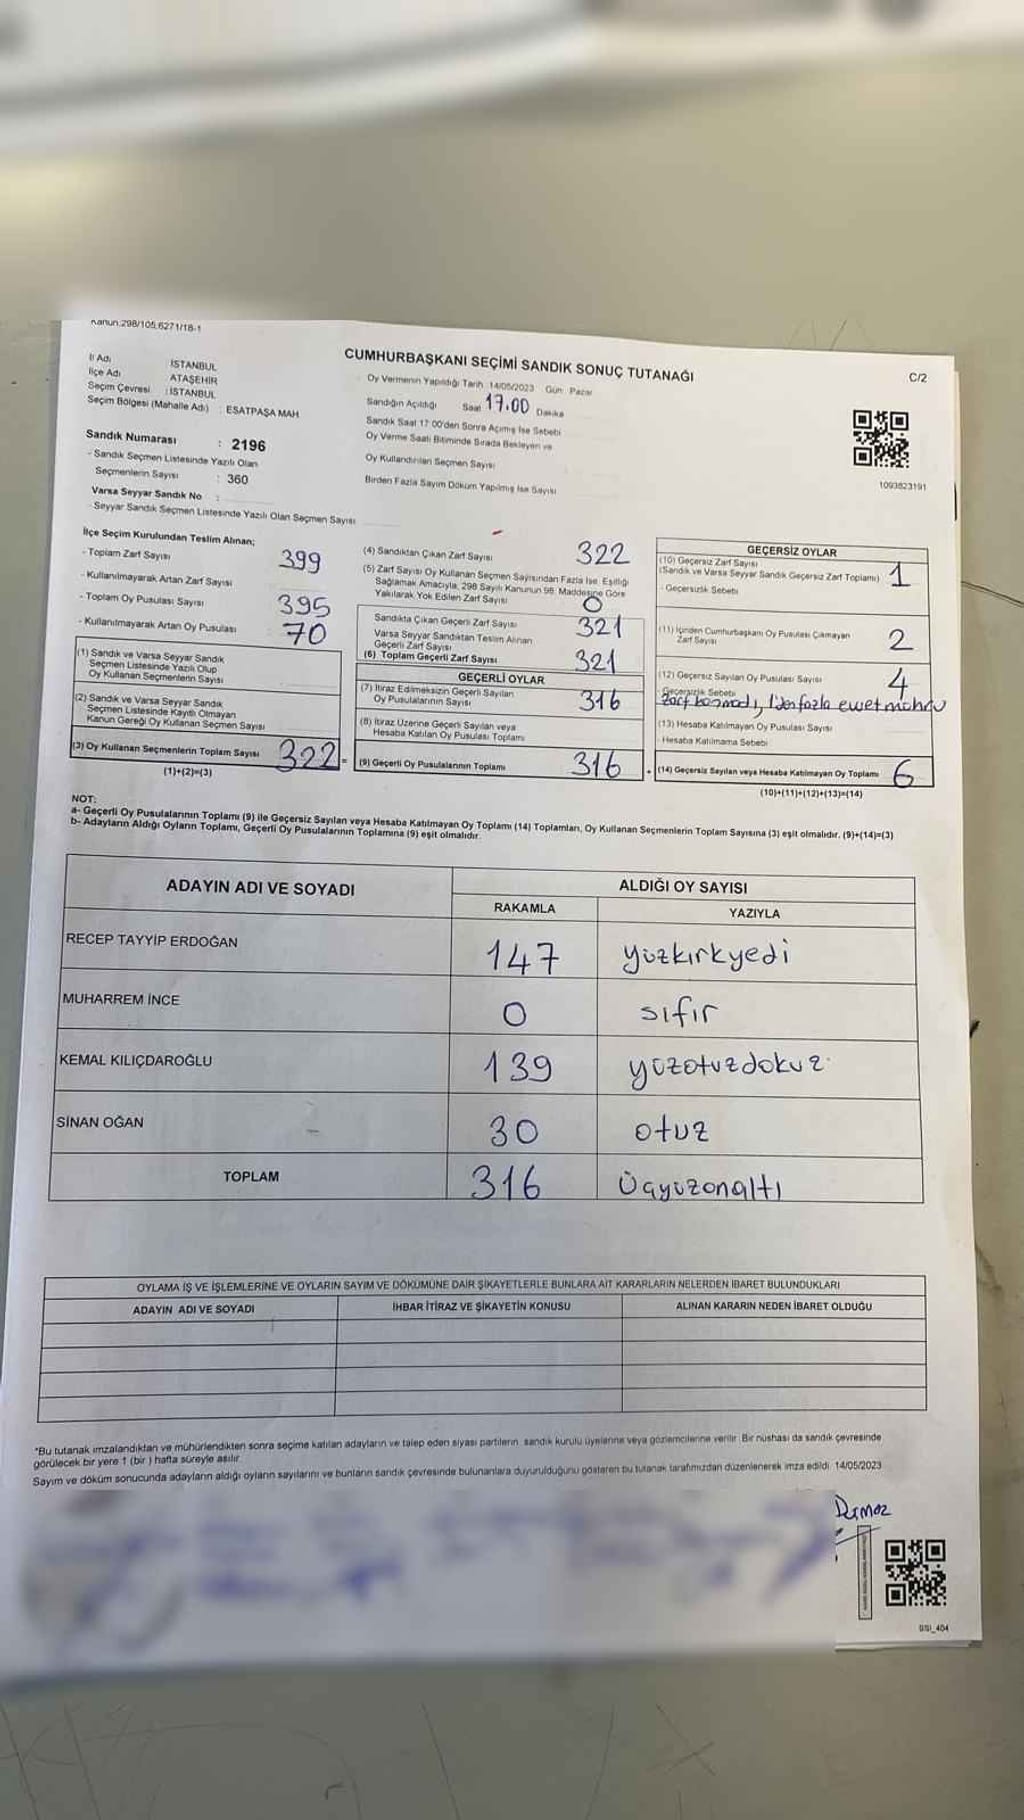 Kanun:298/105,6271/18-1
CUMHURBAŞKANI SEÇİMİ SANDIK SONUÇ TUTANAĞI
C/2
İl Adı : İSTANBUL
İlçe Adı : ATAŞEHİR
Seçim Çevresi : İSTANBUL
Seçim Bölgesi (Mahalle Adı) : ESATPAŞA MAH.
Sandık Numarası : 2196
- Sandık Seçmen Listesinde Yazılı Olan
Seçmenlerin Sayısı : 360
Varsa Seyyar Sandık No :
- Seyyar Sandık Seçmen Listesinde Yazılı Olan Seçmen Sayısı
Oy Vermenin Yapıldığı Tarih 14/05/2023 Gün Pazar
Sandığın Açıldığı Saat 17.00 Dakika
Sandık Saat 17 00'den Sonra Açımış İse Sebebi
Oy Verme Saati Bitiminde Sırada Bekleyen ve
Oy Kullandırılan Seçmen Sayısı
Birden Fazla Sayım Döküm Yapılmış İse Sayısı
1093823191
İlçe Seçim Kurulundan Teslim Alınan;
- Toplam Zarf Sayısı 399
- Kullanılmayarak Artan Zarf Sayısı
- Toplam Oy Pusulası Sayısı 395
- Kullanılmayarak Artan Oy Pusulası 70
(1) Sandık ve Varsa Seyyar Sandık
Seçmen Listesinde Yazılı Olup
Oy Kullanan Seçmenlerin Sayısı
(2) Sandık ve Varsa Seyyar Sandık
Seçmen Listesinde Kayıtlı Olmayan
Kanun Gereği Oy Kullanan Seçmen Sayısı
(3) Oy Kullanan Seçmenlerin Toplam Sayısı 322 =
(1)+(2)=(3)
(4) Sandıktan Çıkan Zarf Sayısı 322
(5) Zarf Sayısı Oy Kullanan Seçmen Sayısından Fazla İse, Eşitliği
Sağlamak Amacıyla, 298 Sayılı Kanunun 98. Maddesine Göre
Yakılarak Yok Edilen Zarf Sayısı 0
Sandıkta Çıkan Geçerli Zarf Sayısı 321
Varsa Seyyar Sandıktan Teslim Alınan
Geçerli Zarf Sayısı
(6) Toplam Geçerli Zarf Sayısı 321
GEÇERLİ OYLAR
(7) İtiraz Edilmeksizin Geçerli Sayılan
Oy Pusulalarının Sayısı 316
(8) İtiraz Üzerine Geçerli Sayılan veya
Hesaba Katılan Oy Pusulası Toplamı
(9) Geçerli Oy Pusulalarının Toplamı 316 +
GEÇERSİZ OYLAR
(10) Geçersiz Zarf Sayısı
(Sandık ve Varsa Seyyar Sandık Geçersiz Zarf Toplamı) 1
- Geçersizlik Sebebi
(11) İçinden Cumhurbaşkanı Oy Pusulası Çıkmayan
Zarf Sayısı 2
(12) Geçersiz Sayılan Oy Pusulası Sayısı 4
- Geçersizlik Sebebi
(13) Hesaba Katılmayan Oy Pusulası Sayısı
- Hesaba Katılmama Sebebi
(14) Geçersiz Sayılan veya Hesaba Katılmayan Oy Toplamı 6
(10)+(11)+(12)+(13)=(14)
NOT:
a- Geçerli Oy Pusulalarının Toplamı (9) ile Geçersiz Sayılan veya Hesaba Katılmayan Oy Toplamı (14) Toplamları, Oy Kullanan Seçmenlerin Toplam Sayısına (3) eşit olmalıdır. (9)+(14)=(3)
b- Adayların Aldığı Oyların Toplamı, Geçerli Oy Pusulalarının Toplamına (9) eşit olmalıdır.
ADAYIN ADI VE SOYADI ALDIĞI OY SAYISI
RAKAMLA YAZIYLA
RECEP TAYYİP ERDOĞAN 147 yüzkırkyedi
MUHARREM İNCE 0 sıfır
KEMAL KILIÇDAROĞLU 139 yüzotuzdokuz
SİNAN OĞAN 30 otuz
TOPLAM 316 Üçyüzonaltı
OYLAMA İŞ VE İŞLEMLERİNE VE OYLARIN SAYIM VE DÖKÜMÜNE DAİR ŞİKAYETLERLE BUNLARA AİT KARARLARIN NELERDEN İBARET BULUNDUKLARI
ADAYIN ADI VE SOYADI İHBAR İTİRAZ VE ŞİKAYETİN KONUSU ALINAN KARARIN NEDEN İBARET OLDUĞU
*Bu tutanak imzalandıktan ve mühürlendikten sonra seçime katılan adayların ve talep eden siyasi partilerin sandık kurulu üyelerine veya gözlemcilerine verilir. Bir nüshası da sandık çevresinde
görülecek bir yere 1 (bir ) hafta süreyle asılır.
Sayım ve döküm sonucunda adayların aldığı oyların sayılarını ve bunların sandık çevresinde bulunanlara duyurulduğunu gösteren bu tutanak tarafımızdan düzenlenerek imza edildi. 14/05/2023